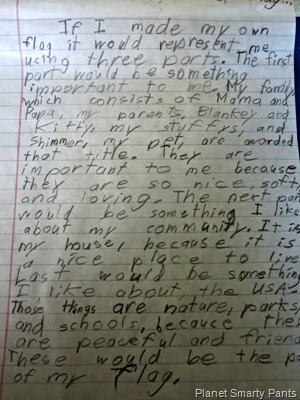 If I made my own
flag it would represent me
using three parts. The first
part would be something
important to me. My family
which consists of Mama and
Papa, my parents, Blankey and
Kitty, my stuffys, and
Shimmer, my pet, are awarded
that title. They are
important to me because
they are so nice, soft
and loving. The next part
would be something I like
about my community. It is
my house, because it is
a nice place to live
Last would be something
I like about the USA.
Those things are nature, parks,
and schools, because they
are peaceful and friend
These would be the p
of my flag.
Planet Smarty Pants